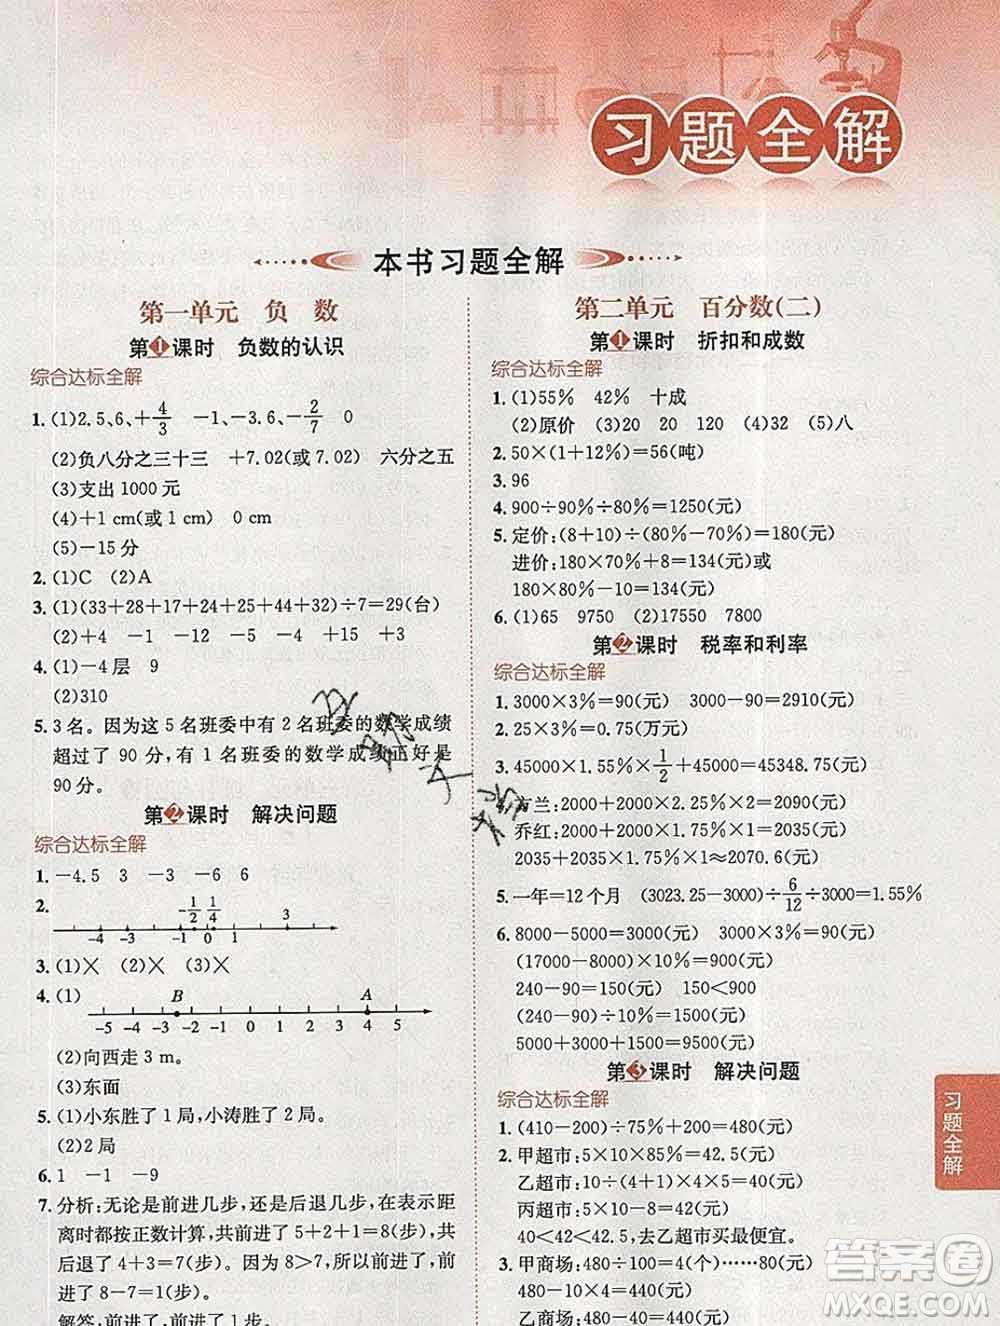 习题全解
本书习题全解
第一单元 负 数
第1课时 负数的认识
综合达标全解
1. (1)2.5,6,+4/3 −1,−3.6,−2/7 0
(2)负八分之三十三 +7.02(或7.02) 六分之五
(3)支出1000元
(4)+1 cm(或1 cm) 0 cm
(5)−15分
2. (1)C (2)A
3. (1)(33+28+17+24+25+44+32)÷7=29(台)
(2)+4 −1 −12 −5 −4 +15 +3
4. (1)−4层 9
(2)310
5. 3名。因为这5名班委中有2名班委的数学成绩
超过了90分,有1名班委的数学成绩正好是
90分。
第2课时 解决问题
综合达标全解
1. −4.5 3 −3 −6 6
2. −1/2 1/4 3
−4 −3 −2 −1 0 1
3. (1)× (2)× (3)×
4. (1) B A
−5 −4 −3 −2 −1 0 1 2 3 4 5
(2)向西走3 m。
(3)东面
5. (1)小东胜了1局,小涛胜了2局。
(2)2局
6. 1 −1 −9
7. 分析:无论是前进几步,还是后退几步,在表示距
离时都按正数计算,共前进了5+2+1=8(步),共
后退了4+3=7(步)。因为8>7,所以最终前进
了8−7=1(步)。
解答:前进了5+2+1=8(步)
第二单元 百分数(二)
第1课时 折扣和成数
综合达标全解
1. (1)55% 42% 十成
(2)原价 (3)20 20 120 (4)32 (5)八
2. 50×(1+12%)=56(吨)
3. 96
4. 900÷90%÷80%=1250(元)
5. 定价:(8+10)÷(80%−70%)=180(元)
进价:180×70%+8=134(元)或
180×80%−10=134(元)
6. (1)65 9750 (2)17550 7800
第2课时 税率和利率
综合达标全解
1. 3000×3%=90(元) 3000−90=2910(元)
2. 25×3%=0.75(万元)
3. 45000×1.55%×1/2+45000=45348.75(元)
兰:2000+2000×2.25%×2=2090(元)
乔红:2000+2000×1.75%×1=2035(元)
2035+2035×1.75%×1≈2070.6(元)
5. 一年=12个月 (3023.25−3000)÷6/12÷3000=1.55%
6. 8000−5000=3000(元) 3000×3%=90(元)
(17000−8000)×10%=900(元)
240−90=150(元) 150<900
(240−90)÷10%=1500(元)
5000+3000+1500=9500(元)
第3课时 解决问题
综合达标全解
1. (410−200)÷75%+200=480(元)
2. 甲超市:5×10×85%=42.5(元)
乙超市:5×10×80%=40(元)
丙超市:5×10−8=42(元)
40<42<42.5,去乙超市买最便宜。
3. 甲商场:480÷100=4(个)……80(元)
480−10×4=440(元)
乙商场:480−40=440(元)
习题全解
答案圈
MXQE.COM